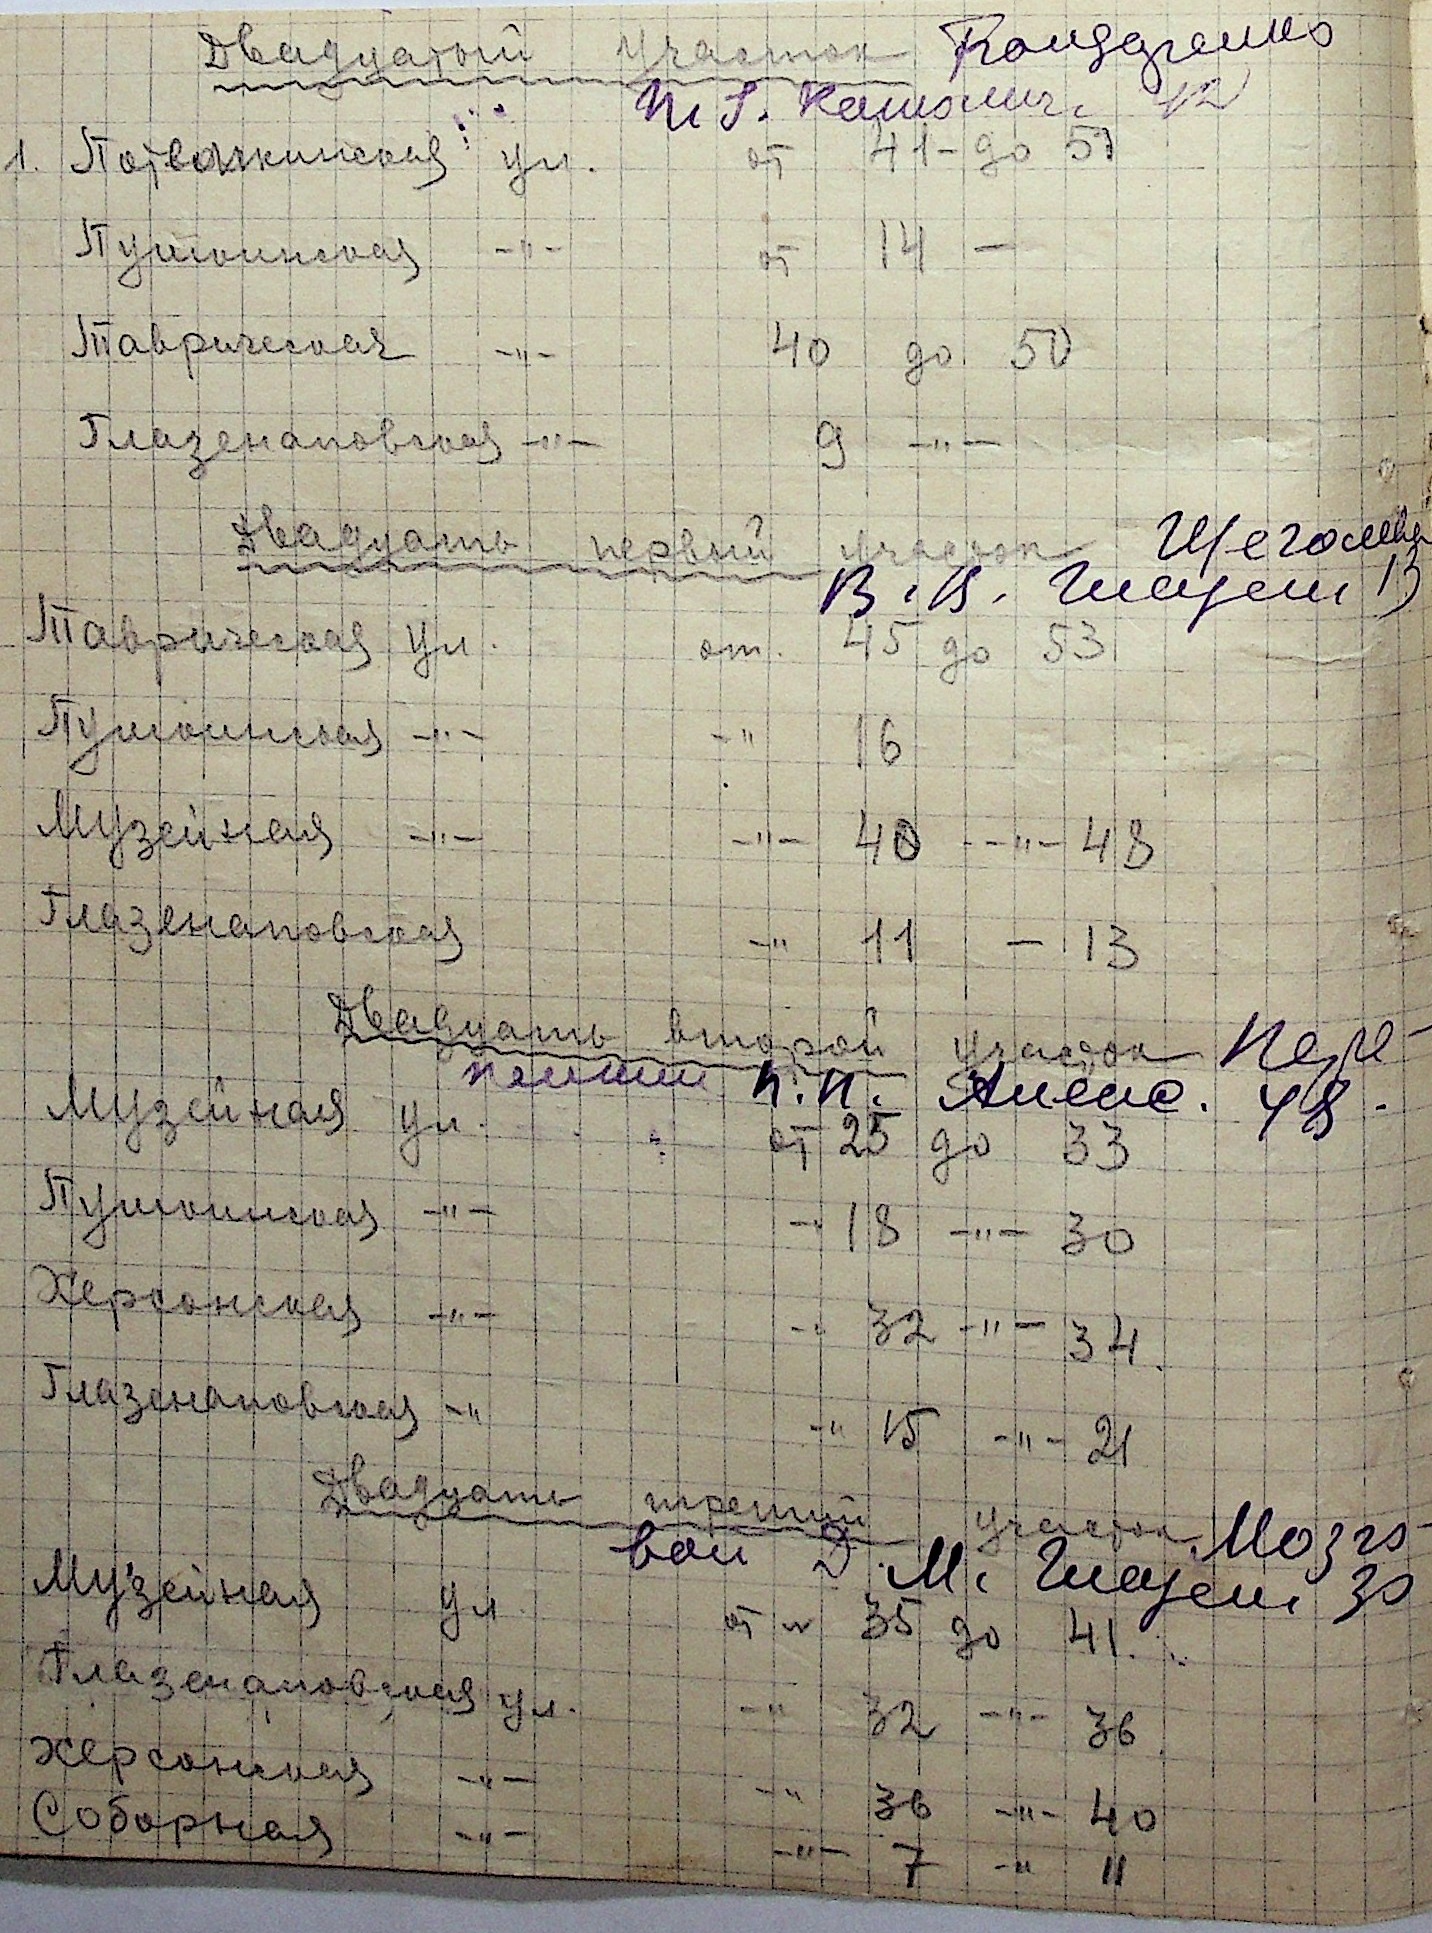 Двадцатый участок Бондаренко
П. Г. Камолич. 42
1. Потёмкинская ул. от 41 - до 51
Пушкинская -"- от 14 -
Таврическая -"- 40 до 50
Глазенаповская -"- 9 -"-
Двадцать первый участок Щеголева
В. И. Глазен. 13
Таврическая ул. от. 45 до 53
Пушкинская -"- -" 16
Музейная -"- -"- 40 -"- 48
Глазенаповская -" 11 - 13
Двадцать второй участок Пере-
П.П. Алекс. 48.
Музейная ул. от 25 до 33
Пушкинская -"- -" 18 -"- 30
Херсонская -"- -" 32 -"- 34.
Глазенаповская -" -" 15 -"- 21
Двадцать третий участок Мозго-
вой Д. М. Глазен. 30
Музейная ул. от 35 до 41.
Глазенаповская ул. -" 32 -"- 36
Херсонская -"- -" 36 -"- 40
Соборная -"- -"- 7 -" 11